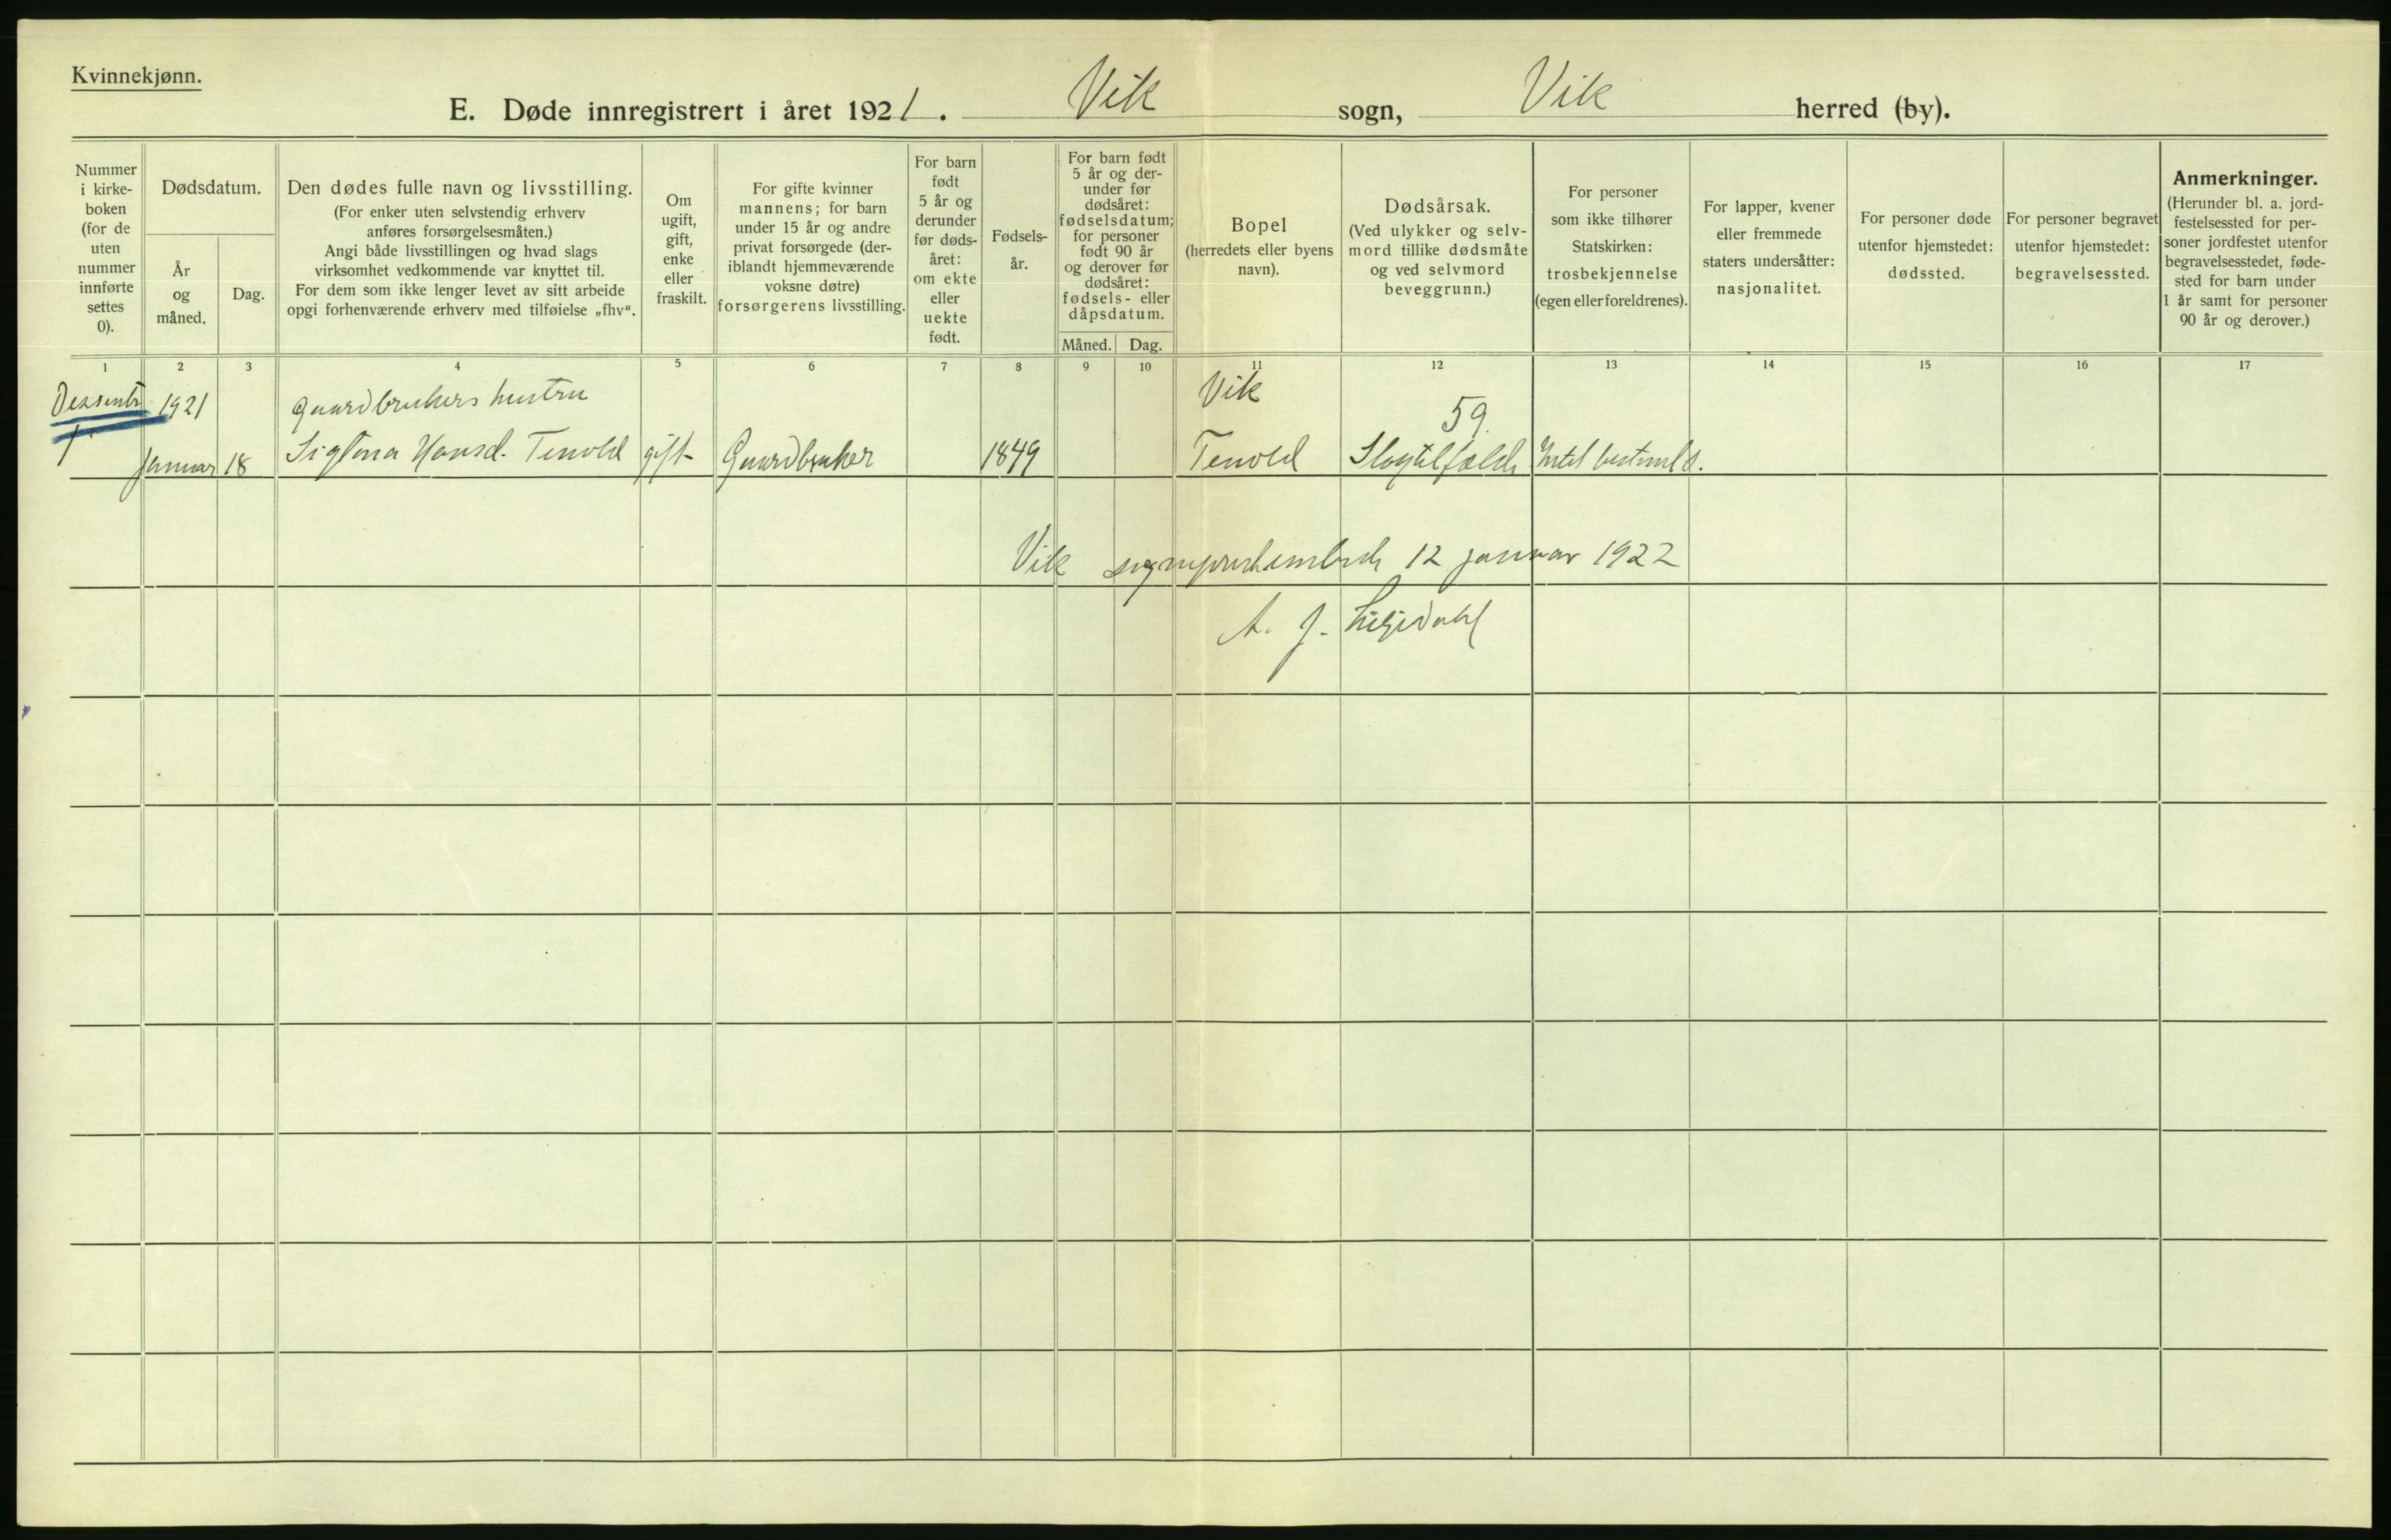 Kvinnekjønn.
E. Døde innregistrert i året 1921. Vik sogn, Vik herred (by).
Nummer i kirke- boken (for de uten nummer innførte settes 0).
Dødsdatum.
År og måned.
Dag.
Den dødes fulle navn og livsstilling.
(For enker uten selvstendig erhverv
anføres forsørgelsesmåten.)
Angi både livsstillingen og hvad slags
virksomhet vedkommende var knyttet til.
For dem som ikke lenger levet av sitt arbeide
opgi forhenværende erhverv med tilføielse „fhv“.
Om ugift, gift, enke eller fraskilt.
For gifte kvinner
mannens; for barn
under 15 år og andre
privat forsørgede (der-
iblandt hjemmeværende
voksne døtre)
forsørgerens livsstilling.
For barn født 5 år og derunder før døds- året: om ekte eller uekte født.
Fødsels- år.
For barn født
5 år og der-
under før
dødsåret:
fødselsdatum;
for personer
født 90 år
og derover før
dødsåret:
fødsels- eller
dåpsdatum.
Måned. Dag.
Bopel
(herredets eller byens
navn).
Dødsårsak.
(Ved ulykker og selv-
mord tillike dødsmåte
og ved selvmord
beveggrunn.)
For personer
som ikke tilhører
Statskirken:
trosbekjennelse
(egen eller foreldrenes).
For lapper, kvener
eller fremmede
staters undersåtter:
nasjonalitet.
For personer døde
utenfor hjemstedet:
dødssted.
For personer begravet
utenfor hjemstedet:
begravelsessted.
Anmerkninger.
(Herunder bl. a. jord-
festelsessted for per-
soner jordfestet utenfor
begravelsesstedet, føde-
sted for barn under
1 år samt for personer
90 år og derover.)
1 2 3 4 5 6 7 8 9 10 11 12 13 14 15 16 17
1921 Gaardbrukers hustru Vik 59.
Januar 18 Hansd. Tenold gift Gaardbruker 1849 Tenold Slagtilfælde
Vik 12 januar 1922
A. J.